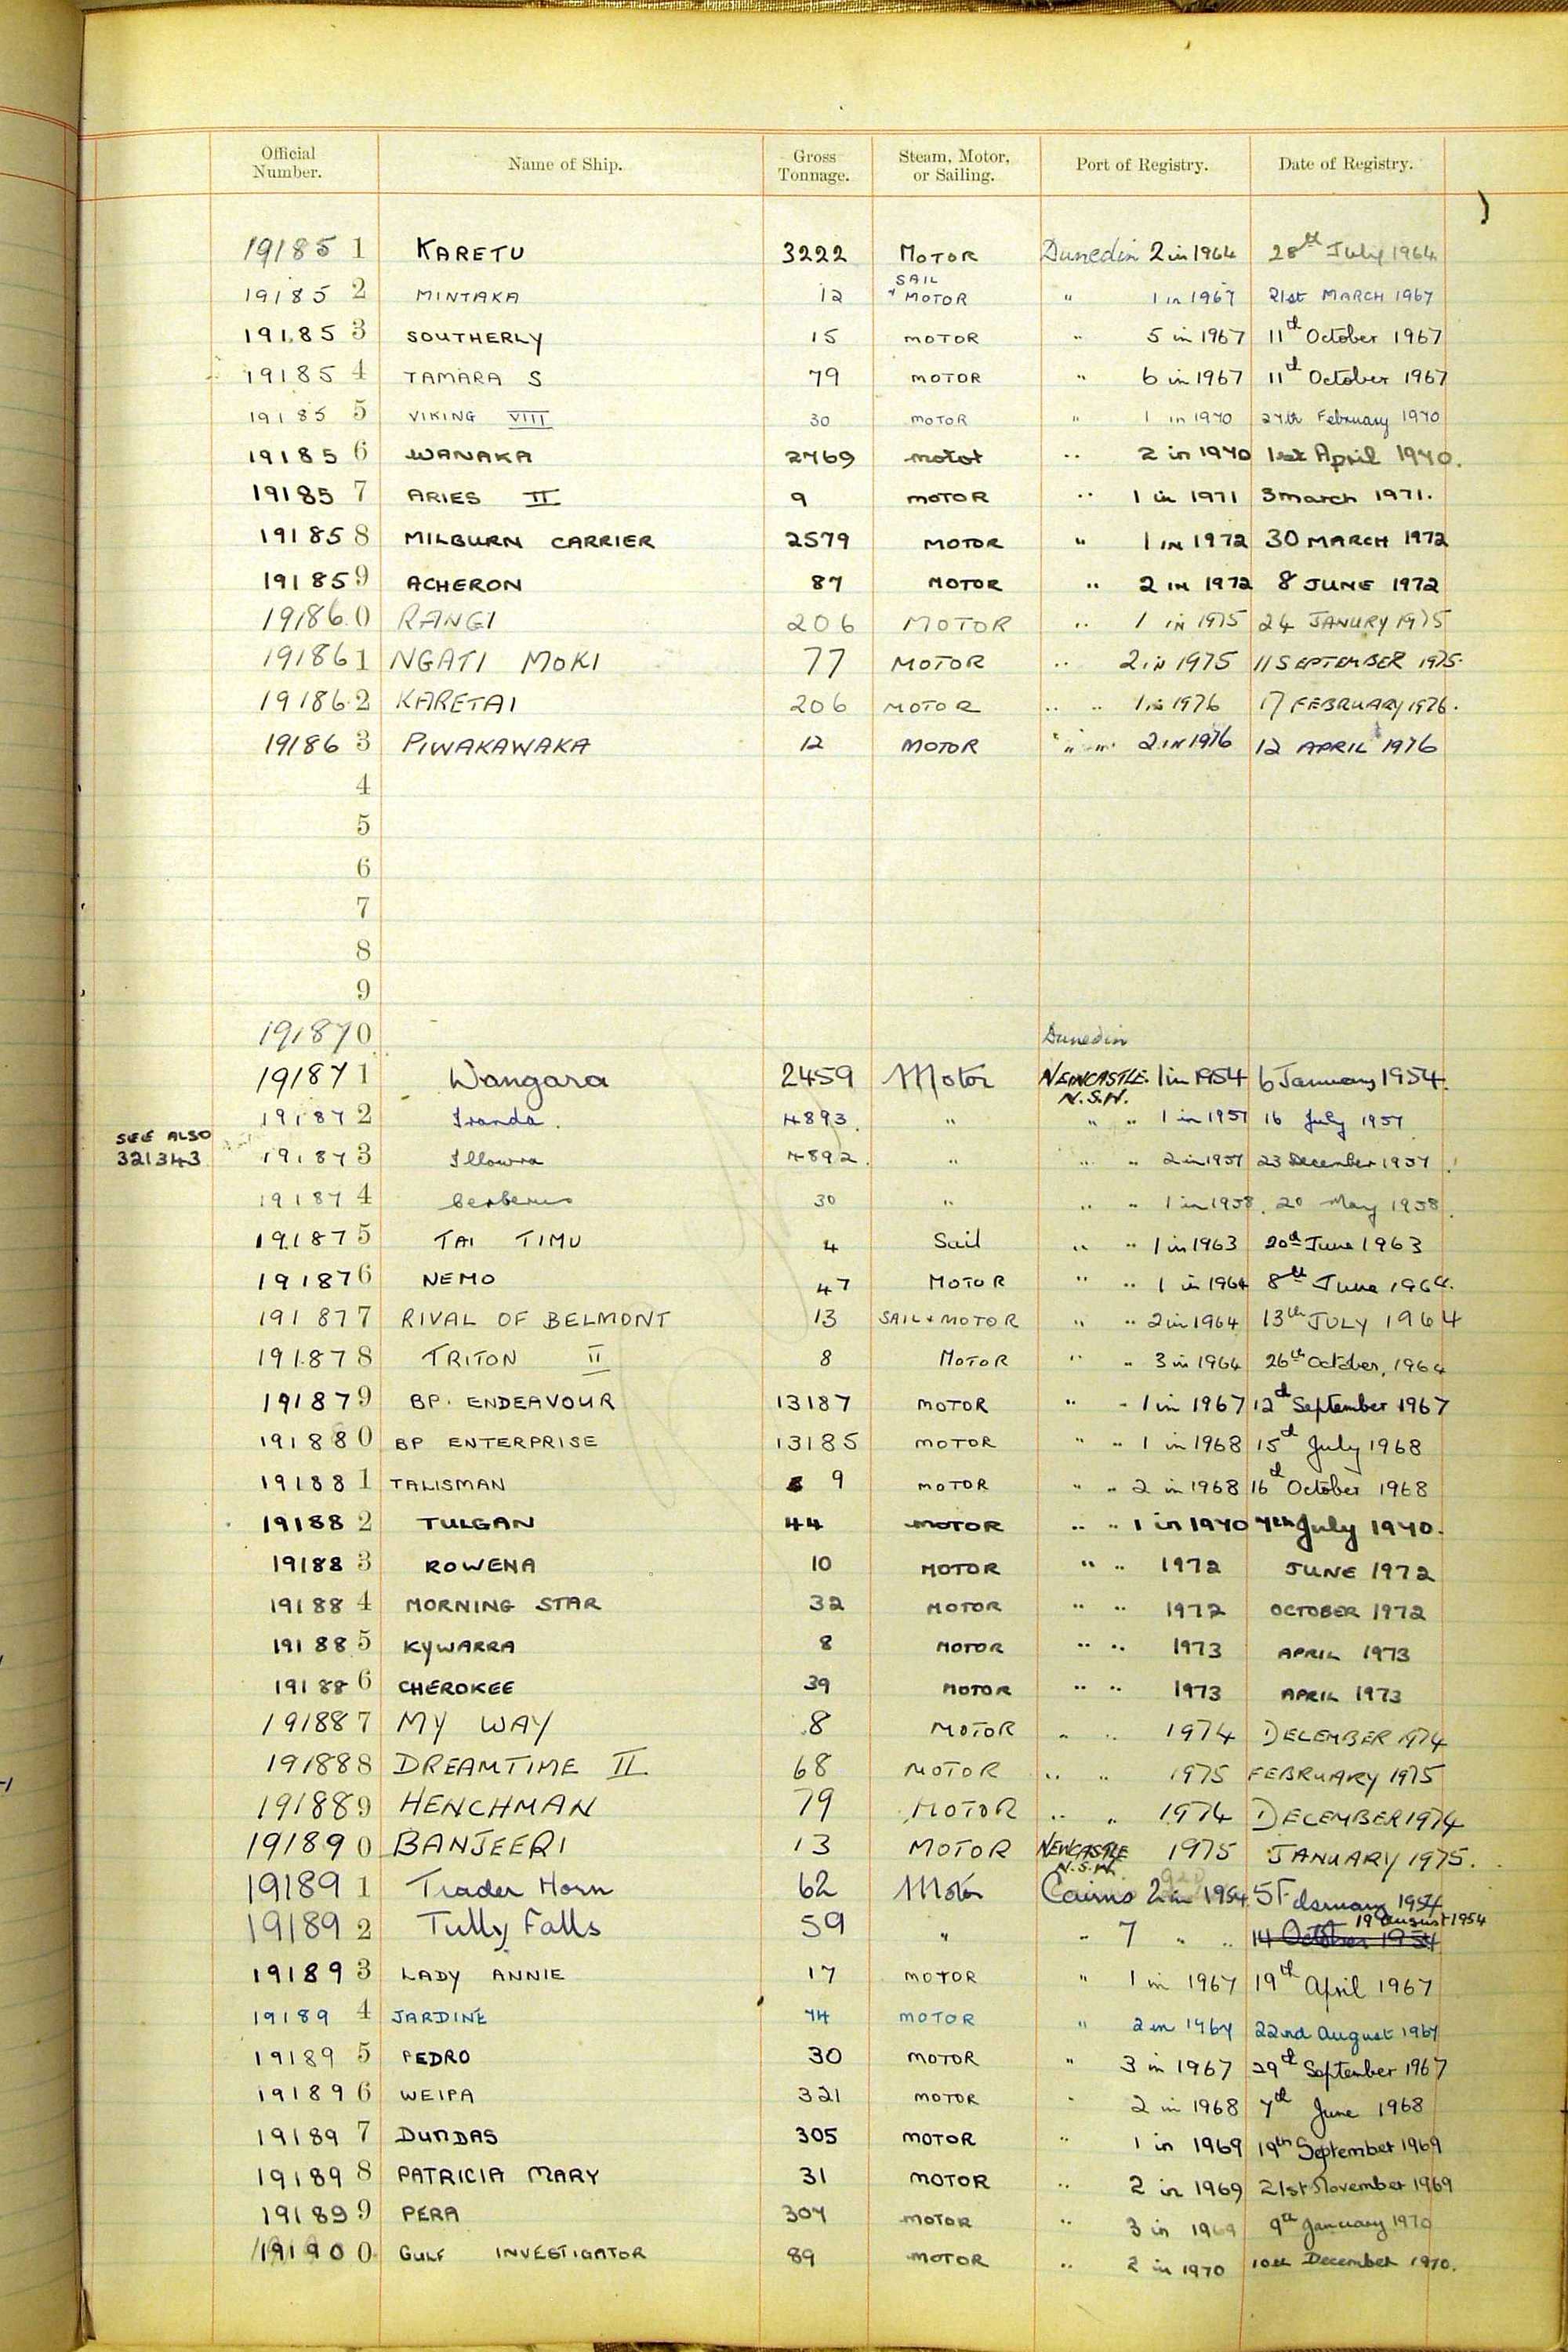 Official Number. Name of Ship. Gross Tonnage. Steam, Motor, or Sailing. Port of Registry. Date of Registry.
191851 KARETU 3222 MOTOR Dunedin 2 in 1964 28th July 1964
191852 MINTAKA 12 SAIL & MOTOR " 1 in 1967 21st MARCH 1967
191853 SOUTHERLY 15 MOTOR " 5 in 1967 11th October 1967
191854 TAMARA S 79 MOTOR " 6 in 1967 11th October 1967
191855 VIKING VIII 30 MOTOR " 1 in 1970 27th February 1970
191856 WANAKA 2769 motor " 2 in 1970 1st April 1970.
191857 ARIES II 9 MOTOR " 1 in 1971 3 march 1971.
191858 MILBURN CARRIER 2579 MOTOR " 1 IN 1972 30 MARCH 1972
191859 ACHERON 87 MOTOR " 2 IN 1972 8 JUNE 1972
191860 RANGI 206 MOTOR " 1 IN 1975 24 JANURY 1975
191861 NGATI MOKI 77 MOTOR " 2 IN 1975 11 SEPTEMBER 1975.
191862 KARETAI 206 MOTOR " " 1 in 1976 17 FEBRUARY 1976.
191863 PIWAKAWAKA 12 MOTOR " " 2 IN 1976 12 APRIL 1976
4
5
6
7
8
9
191870 Dunedin
191871 Wangara 2459 Motor NEWCASTLE. N.S.W. 1 in 1954 6 January 1954.
191872 Iranda. 4893. " " " 1 in 1957 16 July 1957
SEE ALSO 321343 191873 Illowra 4892. " " " 2 in 1957 23 December 1957.
191874 Cerberus 30 " " " 1 in 1958. 20 May 1958.
191875 TAI TIMU 4 Sail " " 1 in 1963 20th June 1963
191876 NEMO 47 MOTOR " " 1 in 1964 8th June 1964.
191877 RIVAL OF BELMONT 13 SAIL & MOTOR " " 2 in 1964 13th JULY 1964
191878 TRITON II 8 MOTOR " " 3 in 1964 26th October, 1964
191879 BP. ENDEAVOUR 13187 MOTOR " " 1 in 1967 12th September 1967
191880 BP ENTERPRISE 13185 MOTOR " " 1 in 1968 15th July 1968
191881 TALISMAN 9 MOTOR " " 2 in 1968 16th October 1968
191882 TULGAN 44 MOTOR " " 1 in 1970 7th July 1970.
191883 ROWENA 10 MOTOR " " 1972 JUNE 1972
191884 MORNING STAR 32 MOTOR " " 1972 OCTOBER 1972
191885 KYWARRA 8 MOTOR " " 1973 APRIL 1973
191886 CHEROKEE 39 MOTOR " " 1973 APRIL 1973
191887 MY WAY 8 MOTOR " " 1974 DECEMBER 1974
191888 DREAMTIME II 68 MOTOR " " 1975 FEBRUARY 1975
191889 HENCHMAN 79 MOTOR " " 1974 DECEMBER 1974
191890 BANJEERI 13 MOTOR NEWCASTLE N.S.W. 1975 JANUARY 1975.
191891 Trader Horn 62 Motor Cairns 2 in 1954 5 February 1954
191892 Tully Falls 59 " " 7 " " 14 October 1954 19 August 1954
191893 LADY ANNIE 17 MOTOR " 1 in 1967 19th April 1967
191894 JARDINE 74 MOTOR " 2 in 1967 22nd August 1967
191895 PEDRO 30 MOTOR " 3 in 1967 29th September 1967
191896 WEIPA 321 MOTOR " 2 in 1968 7th June 1968
191897 DUNDAS 305 MOTOR " 1 in 1969 19th September 1969
191898 PATRICIA MARY 31 MOTOR " 2 in 1969 21st November 1969
191899 PERA 307 MOTOR " 3 in 1969 9th January 1970
191900 GULF INVESTIGATOR 89 MOTOR " 2 in 1970 10th December 1970.